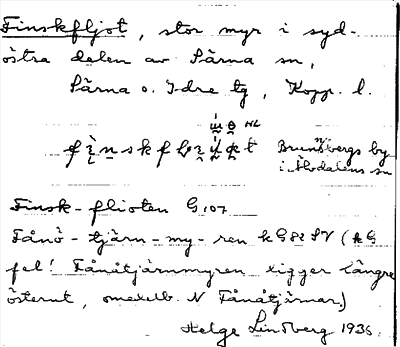 Finskfljot, stor myr i syd-
östra delen av Särna sn,
Särna o. Idre tg, Kopp. l.
Brunnsbergs by
i Älvdalens sn
Finsk-flioten G 107
Fånö-tjärn-my-ren k G82 SV (k G
fel! Fånåtjärnmyren ligger längre
österut, omedelb. N Fånåtjärnar.)
Helge Lindberg 1936.